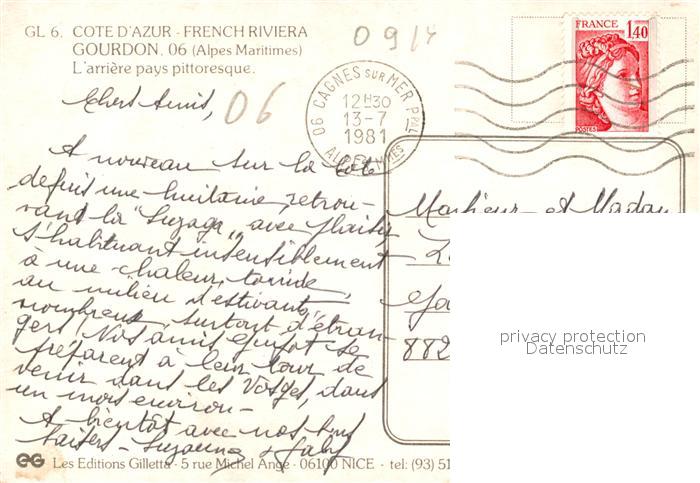 GL 6. COTE D'AZUR - FRENCH RIVIERA
GOURDON. 06 (Alpes Maritimes)
L'arrière pays pittoresque.
09/4
06
06 CAGNES SUR MER PPAL
12H30
13-7
1981
ALPES MMES
FRANCE
1,40
POSTES
Chers Amis,
A nouveau sur la Côte
depuis une huitaine, retrou-
vant la "Suzaga" avec plaisir
s'habituant insensiblement
à une chaleur torride,
au milieu d'estivants,
nombreux, surtout d'étran-
gers. Nos amis se
préparent à leur tour de
venir dans les Vosges, dans
un mois environ -
A bientôt avec nos bons
baisers - Suzanne & Gaby
Monsieur et Madam
882
privacy protection
Datenschutz
GG Les Editions Gilletta - 5 rue Michel Ange - 06100 NICE - tel: (93) 51